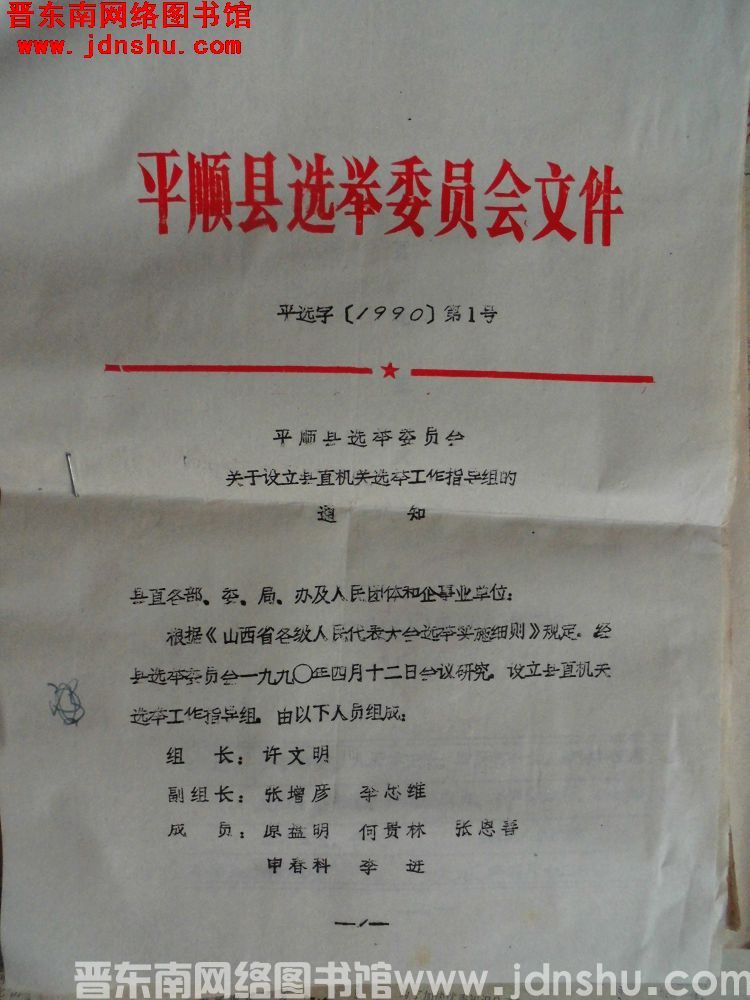 晋东南网络图书馆
www.jdnshu.com
平顺县选举委员会文件
平选字〔1990〕第1号
平顺县选举委员会
关于设立县直机关选举工作指导组的
通 知
县直各部、委、局、办及人民团体和企事业单位：
根据《山西省各级人民代表大会选举实施细则》规定，经
县选举委员会一九九〇年四月十二日会议研究，设立县直机关
选举工作指导组。由以下人员组成：
组 长：许文明
副组长：张增彦 李忠维
成 员：原益明 何贵林 张恩善
申春科 李进
—1—
晋东南网络图书馆www.jdnshu.com